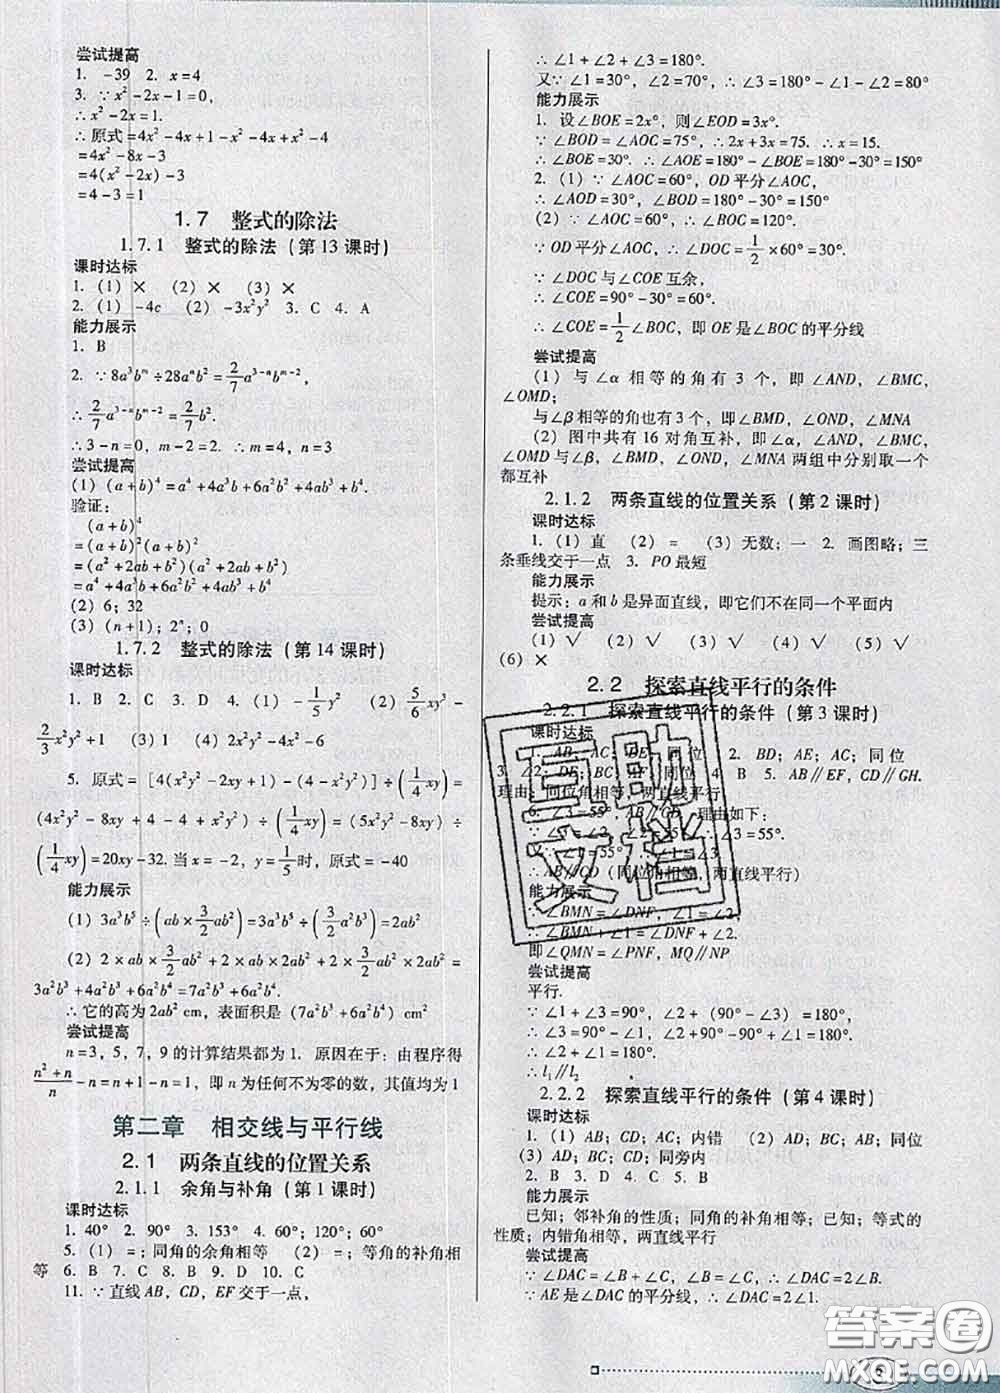 尝试提高
1. -39  2. x=4
3. ∵x²-2x-1=0,
∴x²-2x=1.
∴原式=4x²-4x+1-x²-4x+x²-4
=4x²-8x-3
=4(x²-2x)-3
=4-3=1
1.7 整式的除法
1.7.1 整式的除法(第13课时)
课时达标
1. (1) ×  (2) ×  (3) ×
2. (1) -4c  (2) -3x²y²  3. C  4. A
能力展示
1. B
2. ∵8a³bᵐ÷28aⁿb²=2/7 a³⁻ⁿbᵐ⁻²,
∴2/7 a³⁻ⁿbᵐ⁻²=2/7 b².
∴3-n=0, m-2=2. ∴m=4, n=3
尝试提高
(1) (a+b)⁴=a⁴+4a³b+6a²b²+4ab³+b⁴.
验证:
(a+b)⁴
=(a+b)²(a+b)²
=(a²+2ab+b²)(a²+2ab+b²)
=a⁴+4a³b+6a²b²+4ab³+b⁴
(2) 6; 32
(3) (n+1); 2ⁿ; 0
1.7.2 整式的除法(第14课时)
课时达标
1. B  2. C  3. D  4. (1) -1/5 y²  (2) 5/6 xy²-
2/3 x²y²+1  (3) 1  (4) -2x²-4x-6
5. 原式=[4(x²y²-2xy+1)-(4-x²y²)]÷(1/4 xy)=
(4x²y²-8xy+4-4+x²y²)÷(1/4 xy)=(5x²y²-8xy)÷
(1/4 xy)=20xy-32. 当x=-2, y=1/5时, 原式=-40
能力展示
(1) 3a³b⁵÷(ab×3/2 ab²)=3a³b⁵÷(3/2 a²b³)=2ab²
(2) 2×ab×3/2 ab²+2×ab×2ab²+2×3/2 ab²×2ab²=
3a²b³+4a²b³+6a²b⁴=7a²b³+6a²b⁴.
∴它的高为2ab² cm, 表面积是(7a²b³+6a²b⁴) cm²
尝试提高
n=3, 5, 7, 9的计算结果都为1. 原因在于: 由程序得
(n²+n)/n-n=n+1-n=1, 即n为任何不为零的数, 其值均为1
第二章 相交线与平行线
2.1 两条直线的位置关系
2.1.1 余角与补角(第1课时)
课时达标
1. 40°  2. 90°  3. 153°  4. 60°; 120°; 60°
5. (1) =; 同角的余角相等  (2) =; 等角的补角相
等  6. B  7. C  8. B  9. D  10. C
11. ∵直线AB, CD, EF交于一点,
∴∠1+∠2+∠3=180°.
又∵∠1=30°, ∠2=70°, ∴∠3=180°-∠1-∠2=80°
能力展示
1. 设∠BOE=2x°, 则∠EOD=3x°.
∵∠BOD=∠AOC=75°, ∴2x+3x=75. ∴x=15.
∴∠BOE=30°. ∴∠AOE=180°-∠BOE=180°-30°=150°
2. (1) ∵∠AOC=60°, OD平分∠AOC,
∴∠AOD=30°. ∴∠BOD=180°-30°=150°
(2) ∵∠AOC=60°, ∴∠BOC=120°.
∵OD平分∠AOC, ∴∠DOC=1/2×60°=30°.
∵∠DOC与∠COE互余,
∴∠COE=90°-30°=60°.
∴∠COE=1/2∠BOC, 即OE是∠BOC的平分线
尝试提高
(1) 与∠α相等的角有3个, 即∠AND, ∠BMC,
∠OMD;
与∠β相等的角也有3个, 即∠BMD, ∠OND, ∠MNA
(2) 图中共有16对角互补, 即∠α, ∠AND, ∠BMC,
∠OMD与∠β, ∠BMD, ∠OND, ∠MNA两组中分别取一个
都互补
2.1.2 两条直线的位置关系(第2课时)
课时达标
1. (1) 直  (2) =  (3) 无数; 一  2. 画图略; 三
条垂线交于一点  3. PO最短
能力展示
提示: a和b是异面直线, 即它们不在同一个平面内
尝试提高
(1) √  (2) √  (3) √  (4) √  (5) √
(6) ×
2.2 探索直线平行的条件
2.2.1 探索直线平行的条件(第3课时)
课时达标
1. AB; AC; DE; 同位  2. BD; AE; AC; 同位
3. ∠2; DE; BC; 同位  4. B  5. AB∥EF, CD∥GH.
理由: 同位角相等, 两直线平行
6. ∠3=55°, AB∥CD. 理由如下:
∵∠3=∠2, ∠2=55°, ∴∠3=55°.
又∵∠1=55°, ∴∠1=∠3.
∴AB∥CD(同位角相等, 两直线平行)
能力展示
∵∠BMN=∠DNF, ∠1=∠2,
∴∠BMN+∠1=∠DNF+∠2.
即∠QMN=∠PNF, MQ∥NP
尝试提高
平行.
∵∠1+∠3=90°, ∠2+(90°-∠3)=180°,
∴∠3=90°-∠1, ∠2+90°-90°+∠1=180°.
∴∠1+∠2=180°.
∴l₁∥l₂
2.2.2 探索直线平行的条件(第4课时)
课时达标
1. (1) AB; CD; AC; 内错  (2) AD; BC; AB; 同位
(3) AD; BC; CD; 同旁内
2. B  3. D  4. C  5. B
能力展示
已知; 邻补角的性质; 同角的补角相等; 已知; 等式的
性质; 内错角相等, 两直线平行
尝试提高
∵∠DAC=∠B+∠C, ∠B=∠C, ∴∠DAC=2∠B.
∵AE是∠DAC的平分线, ∴∠DAC=2∠1.
互助
文档
答案圈
MXQE.COM